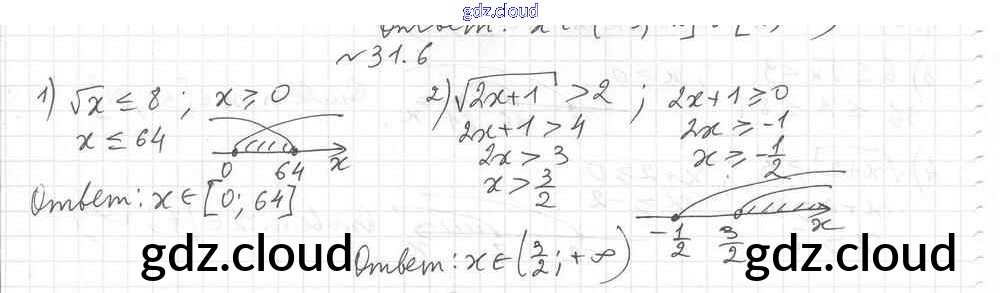 gdz.cloud
Ответ: x ∈
№31.6
1) √x ≤ 8 ; x ⩾ 0
x ≤ 64
0 64 x
Ответ: x ∈ [0; 64]
2) √2x+1 > 2 ; 2x+1 ⩾ 0
2x+1 > 4 2x ⩾ -1
2x > 3 x ⩾ -1/2
x > 3/2
-1/2 3/2 x
Ответ: x ∈ (3/2; +∞)
gdz.cloud gdz.cloud